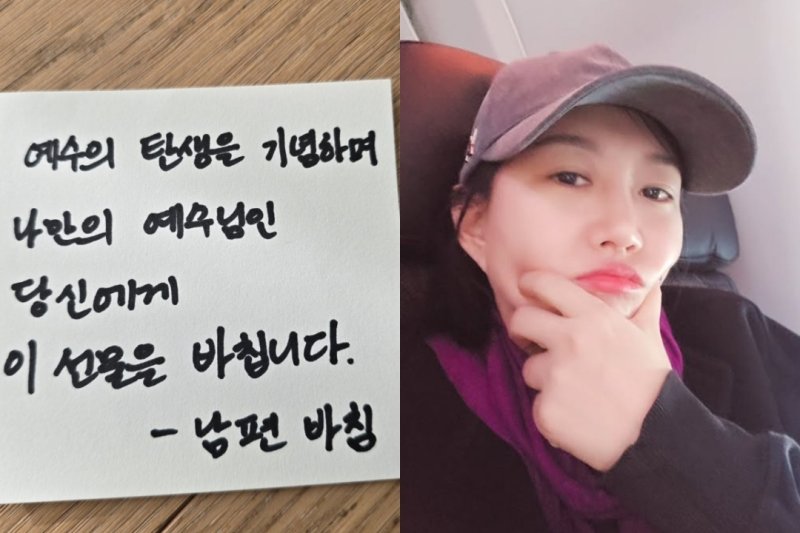 예수의 탄생을 기념하며
나만의 예수님인
당신에게
이 선물을 바칩니다.
- 남편 바침